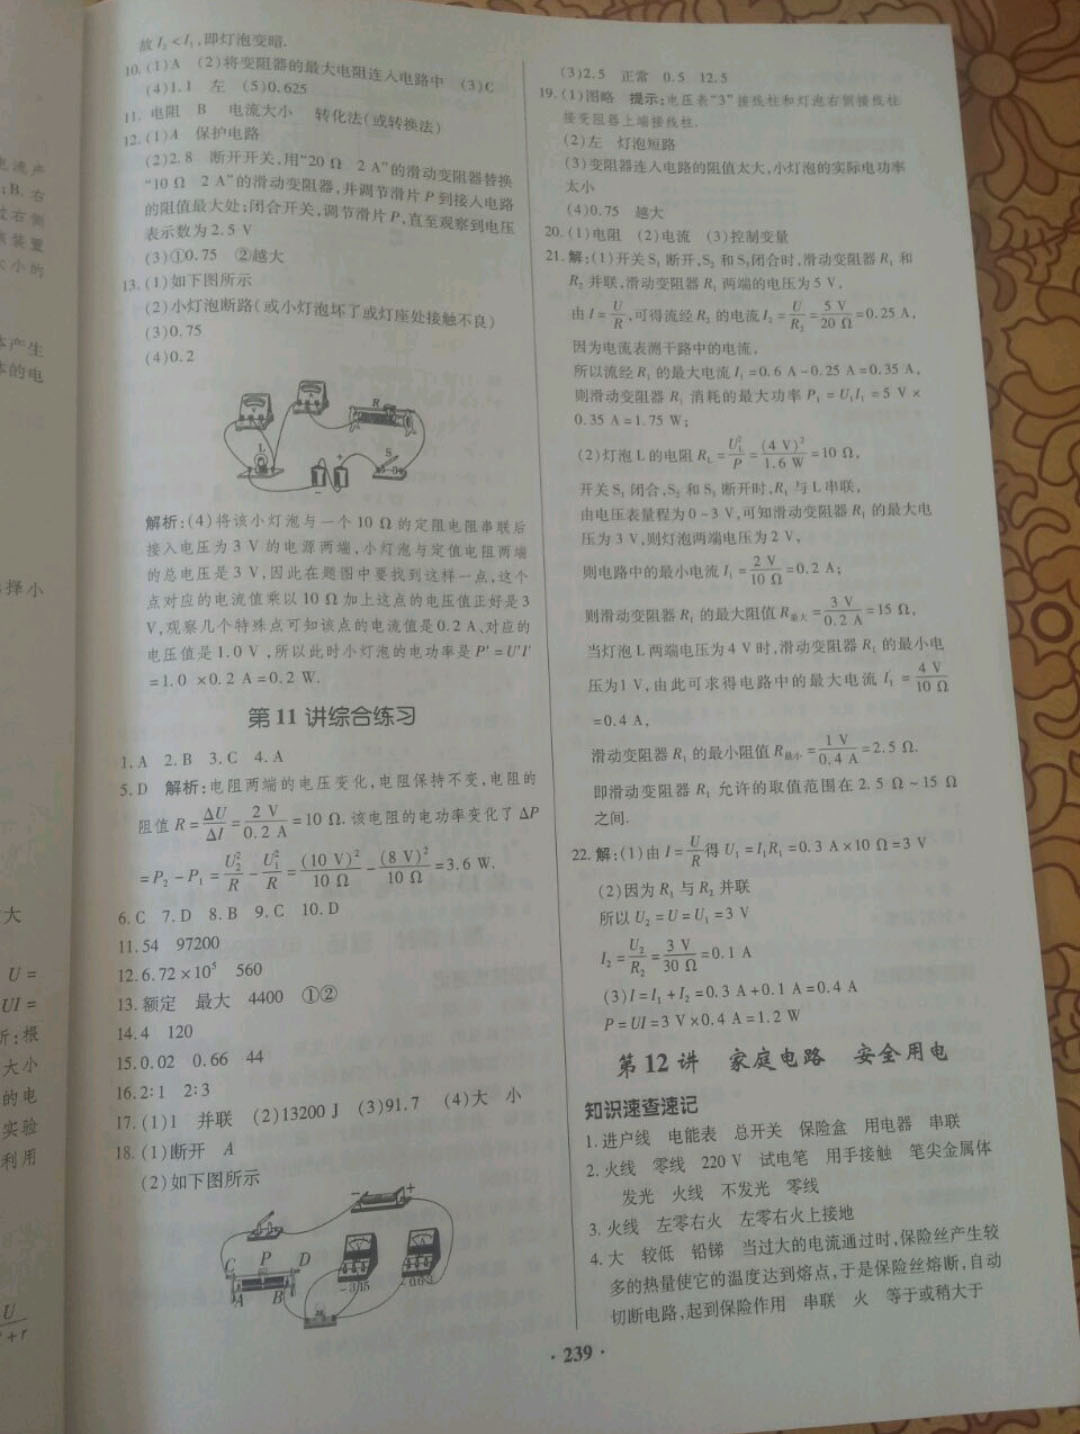 故I₂<I₁,即灯泡变暗.
10.(1)A (2)将变阻器的最大电阻连入电路中 (3)C
(4)1.1 左 (5)0.625
11. 电阻 B 电流大小 转化法(或转换法)
12.(1)A 保护电路
(2)2.8 断开开关,用“20 Ω 2 A”的滑动变阻器替换
“10 Ω 2 A”的滑动变阻器,并调节滑片P到接入电路
的阻值最大处;闭合开关,调节滑片P,直至观察到电压
表示数为2.5 V
(3)①0.75 ②越大
13.(1)如下图所示
(2)小灯泡断路(或小灯泡坏了或灯座处接触不良)
(3)0.75
(4)0.2
R
L
S
- +
解析:(4)将该小灯泡与一个10 Ω的定阻电阻串联后
接入电压为3 V的电源两端,小灯泡与定值电阻两端
的总电压是3 V,因此在题图中要找到这样一点,这个
点对应的电流值乘以10 Ω加上这点的电压值正好是3
V,观察几个特殊点可知该点的电流值是0.2 A、对应的
电压值是1.0 V,所以此时小灯泡的电功率是P′=U′I′
=1.0 ×0.2 A=0.2 W.
第11讲综合练习
1.A 2.B 3.C 4.A
5.D 解析:电阻两端的电压变化,电阻保持不变,电阻的
阻值R=ΔU/ΔI=2 V/0.2 A=10 Ω.该电阻的电功率变化了ΔP
=P₂-P₁=U₂²/R-U₁²/R=(10 V)²/10 Ω-(8 V)²/10 Ω=3.6 W.
6.C 7.D 8.B 9.C 10.D
11.54 97200
12.6.72×10⁵ 560
13.额定 最大 4400 ①②
14.4 120
15.0.02 0.66 44
16.2:1 2:3
17.(1)1 并联 (2)13200 J (3)91.7 (4)大 小
18.(1)断开 A
(2)如下图所示
- +
C P D
A B
(3)2.5 正常 0.5 12.5
19.(1)图略 提示:电压表“3”接线柱和灯泡右侧接线柱
接变阻器上端接线柱.
(2)左 灯泡短路
(3)变阻器连入电路的阻值太大,小灯泡的实际电功率
太小
(4)0.75 越大
20.(1)电阻 (2)电流 (3)控制变量
21.解:(1)开关S₁断开,S₂和S₃闭合时,滑动变阻器R₁和
R₂并联,滑动变阻器R₁两端的电压为5 V,
由I=U/R,可得流经R₂的电流I₂=U/R₂=5 V/20 Ω=0.25 A,
因为电流表测干路中的电流,
所以流经R₁的最大电流I₁=0.6 A-0.25 A=0.35 A,
则滑动变阻器R₁消耗的最大功率P₁=U₁I₁=5 V×
0.35 A=1.75 W;
(2)灯泡L的电阻R_L=U_L²/P=(4 V)²/1.6 W=10 Ω,
开关S₁闭合,S₂和S₃断开时,R₁与L串联,
由电压表量程为0~3 V,可知滑动变阻器R₁的最大电
压为3 V,则灯泡两端电压为2 V,
则电路中的最小电流I₁=2 V/10 Ω=0.2 A;
则滑动变阻器R₁的最大阻值R最大=3 V/0.2 A=15 Ω,
当灯泡L两端电压为4 V时,滑动变阻器R₁的最小电
压为1 V,由此可求得电路中的最大电流I₁′=4 V/10 Ω
=0.4 A,
滑动变阻器R₁的最小阻值R最小=1 V/0.4 A=2.5 Ω.
即滑动变阻器R₁允许的取值范围在2.5 Ω~15 Ω
之间.
22.解:(1)由I=U/R得U₁=I₁R₁=0.3 A×10 Ω=3 V
(2)因为R₁与R₂并联
所以U₂=U=U₁=3 V
I₂=U₂/R₂=3 V/30 Ω=0.1 A
(3)I=I₁+I₂=0.3 A+0.1 A=0.4 A
P=UI=3 V×0.4 A=1.2 W
第12讲 家庭电路 安全用电
知识速查速记
1.进户线 电能表 总开关 保险盒 用电器 串联
2.火线 零线 220 V 试电笔 用手接触 笔尖金属体
发光 火线 不发光 零线
3.火线 左零右火 左零右火上接地
4.大 较低 铅锑 当过大的电流通过时,保险丝产生较
多的热量使它的温度达到熔点,于是保险丝熔断,自动
切断电路,起到保险作用 串联 火 等于或稍大于
· 239 ·